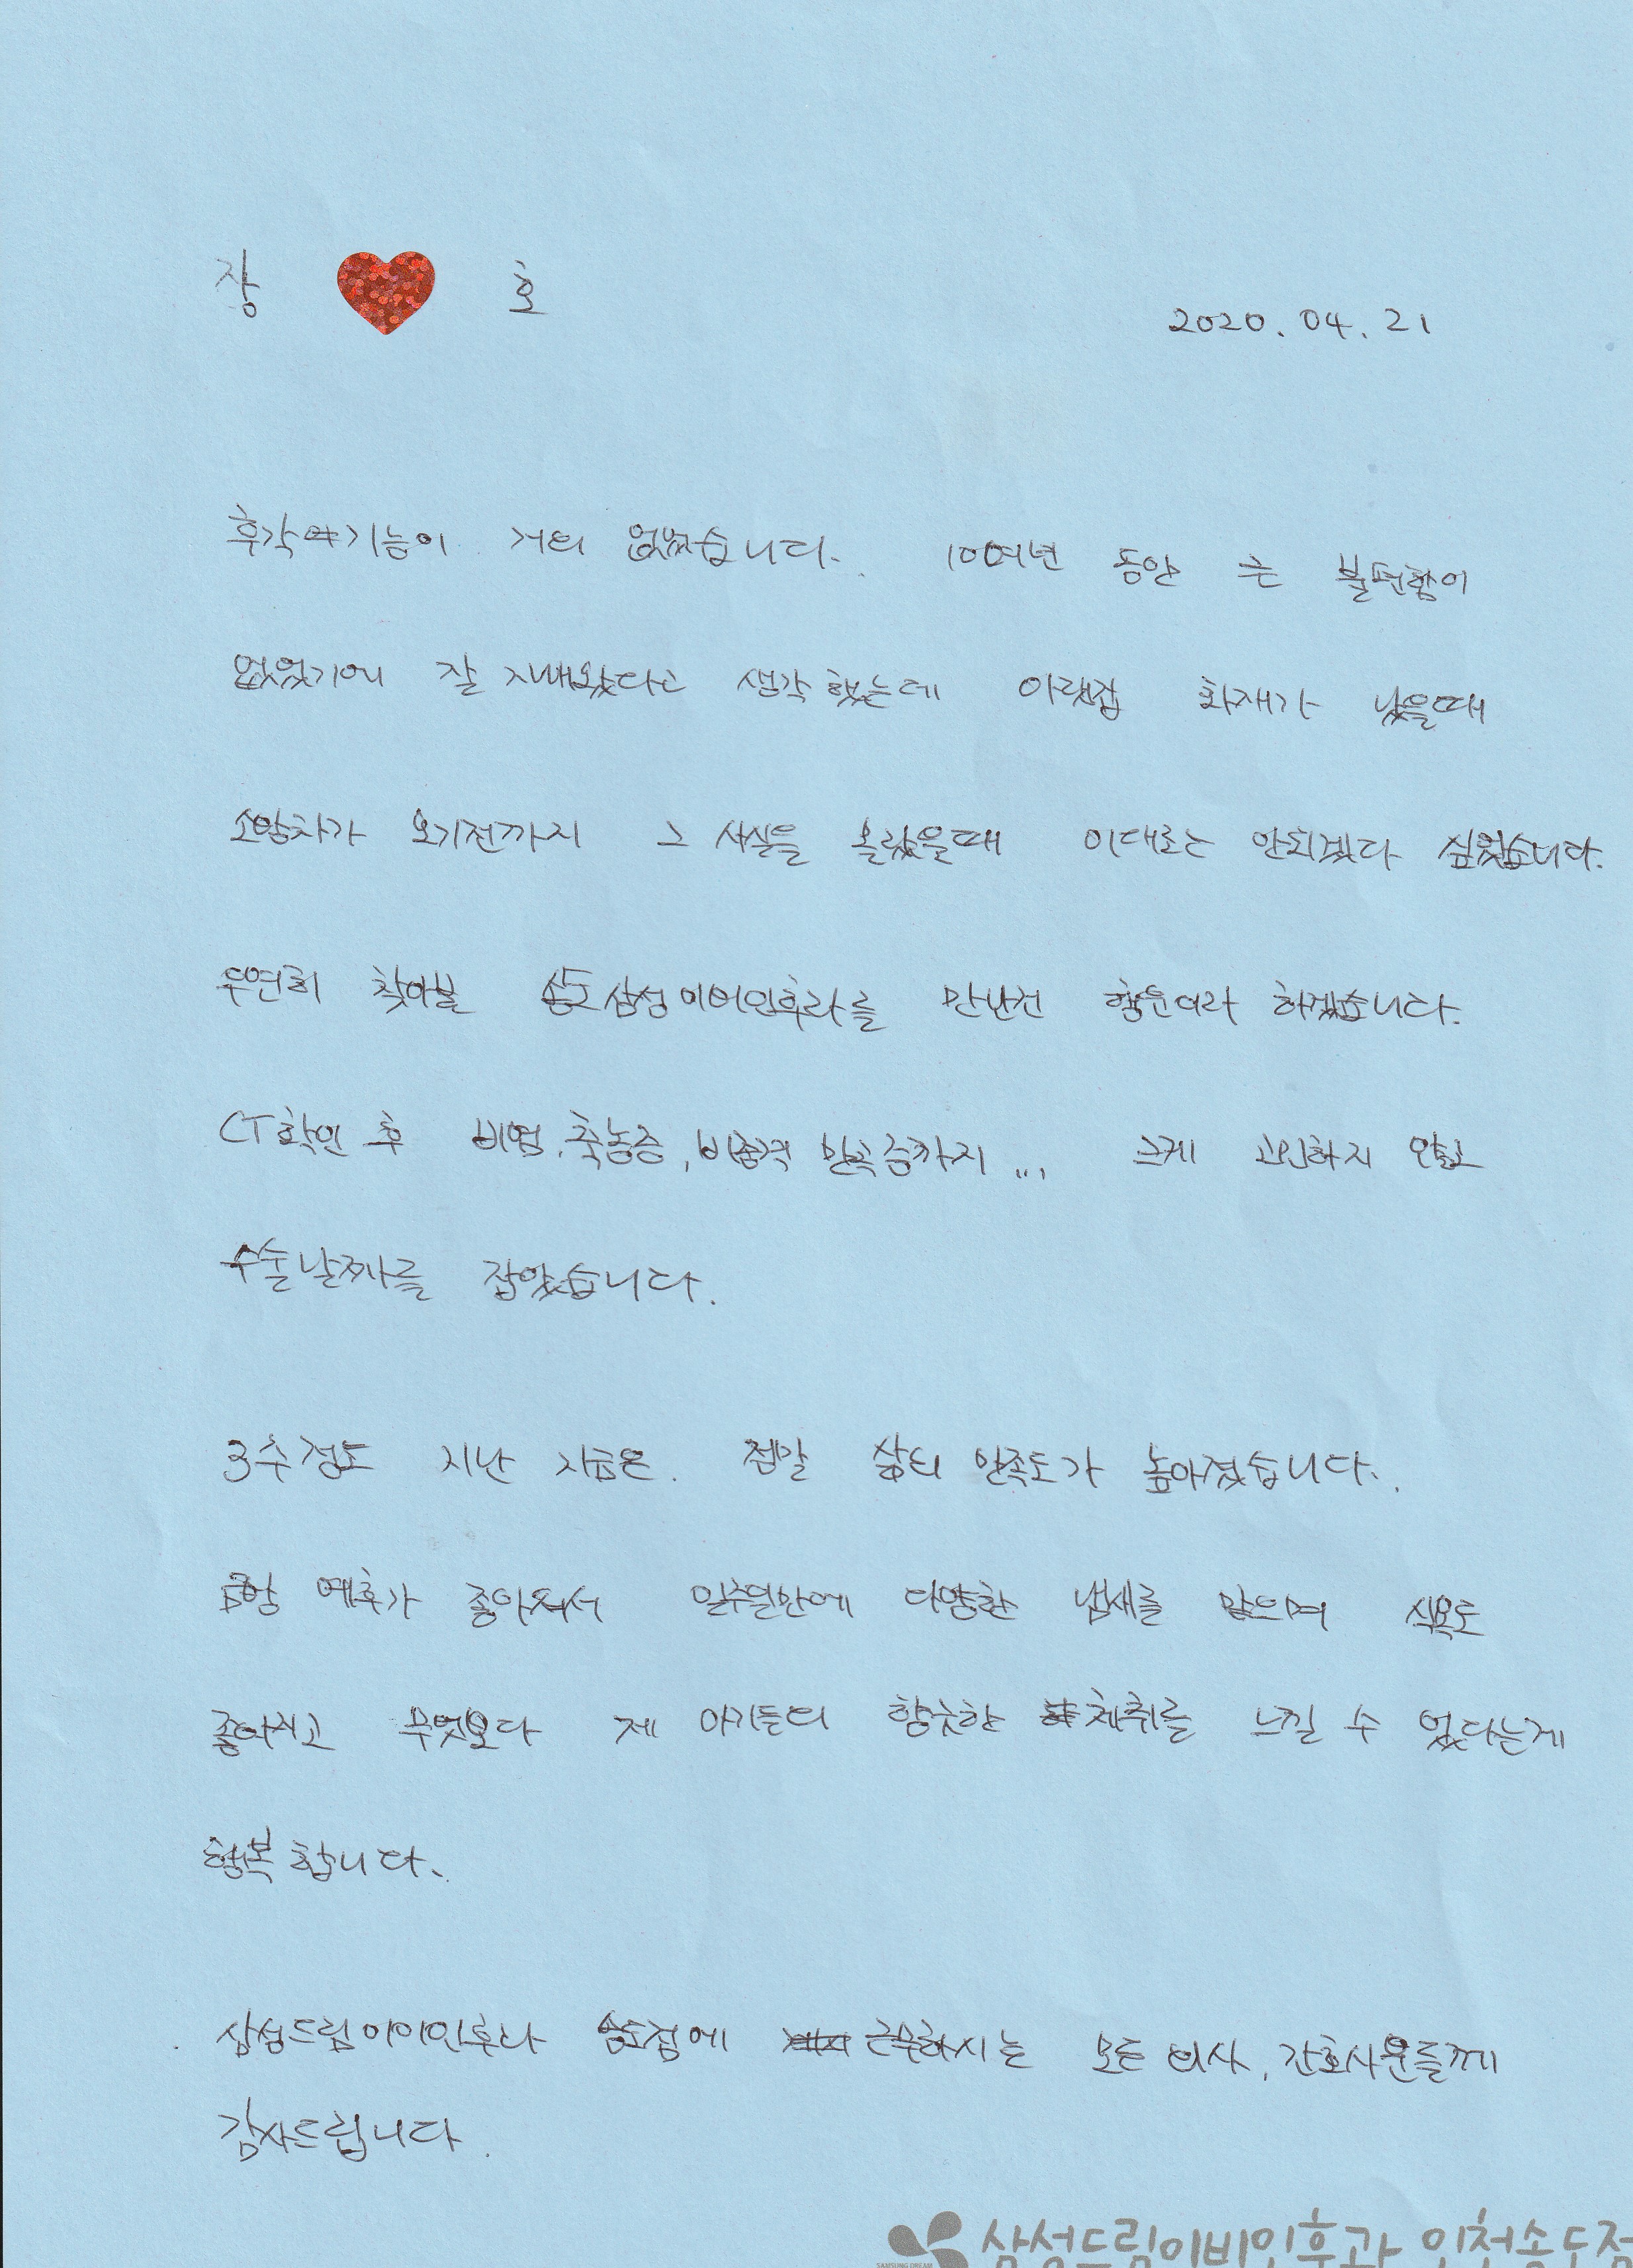 장 호
2020. 04. 21
후각기능이 거의 없었습니다. 10여년 동안 큰 불편함이
없었기에 잘 지내왔다고 생각했는데 아랫집 화재가 났을때
소방차가 오기전까지 그 사실을 몰랐을때 이대로는 안되겠다 싶었습니다.
우연히 찾아본 송도삼성이비인후과를 만난건 행운이라 하겠습니다.
CT확인 후 비염, 축농증, 비중격 만곡증까지... 크게 고민하지 않고
수술날짜를 잡았습니다.
3주정도 지난 지금은. 정말 삶의 만족도가 높아졌습니다.
예후가 좋아져서 일주일만에 다양한 냄새를 맡으며 식욕도
좋아지고 무엇보다 제 아기들의 향긋한 체취를 느낄 수 있다는게
행복합니다.
삼성드림이비인후과 송도점에 근무하시는 모든 의사, 간호사분들께
감사드립니다.
삼성드림이비인후과 인천송도점
SAMSUNG DREAM